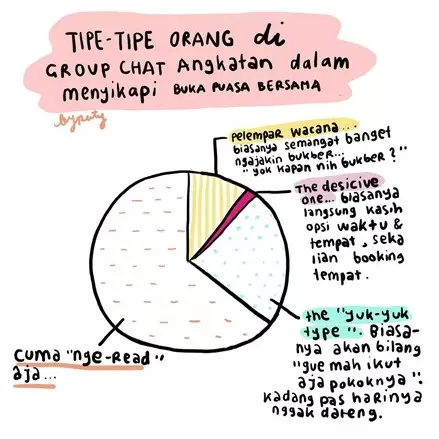 TIPE-TIPE ORANG di
GROUP CHAT ANGKATAN dalam
menyikapi BUKA PUASA BERSAMA
byputy
pelempar wacana...
biasanya semangat banget
ngajakin bukber...
"yok kapan nih bukber?"
The desicive
one... biasanya
langsung kasih
opsi waktu &
tempat, seka
lian booking
tempat.
the "yuk-yuk
type". Biasa-
nya akan bilang
"gue mah ikut
aja pokoknya".
kadang pas harinya
nggak dateng.
cuma "nge-Read"
aja...